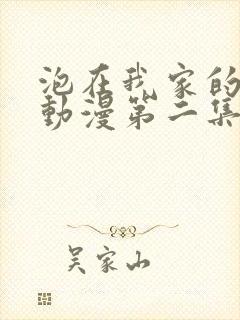 泡在我家的
動漫第二集
吴家山